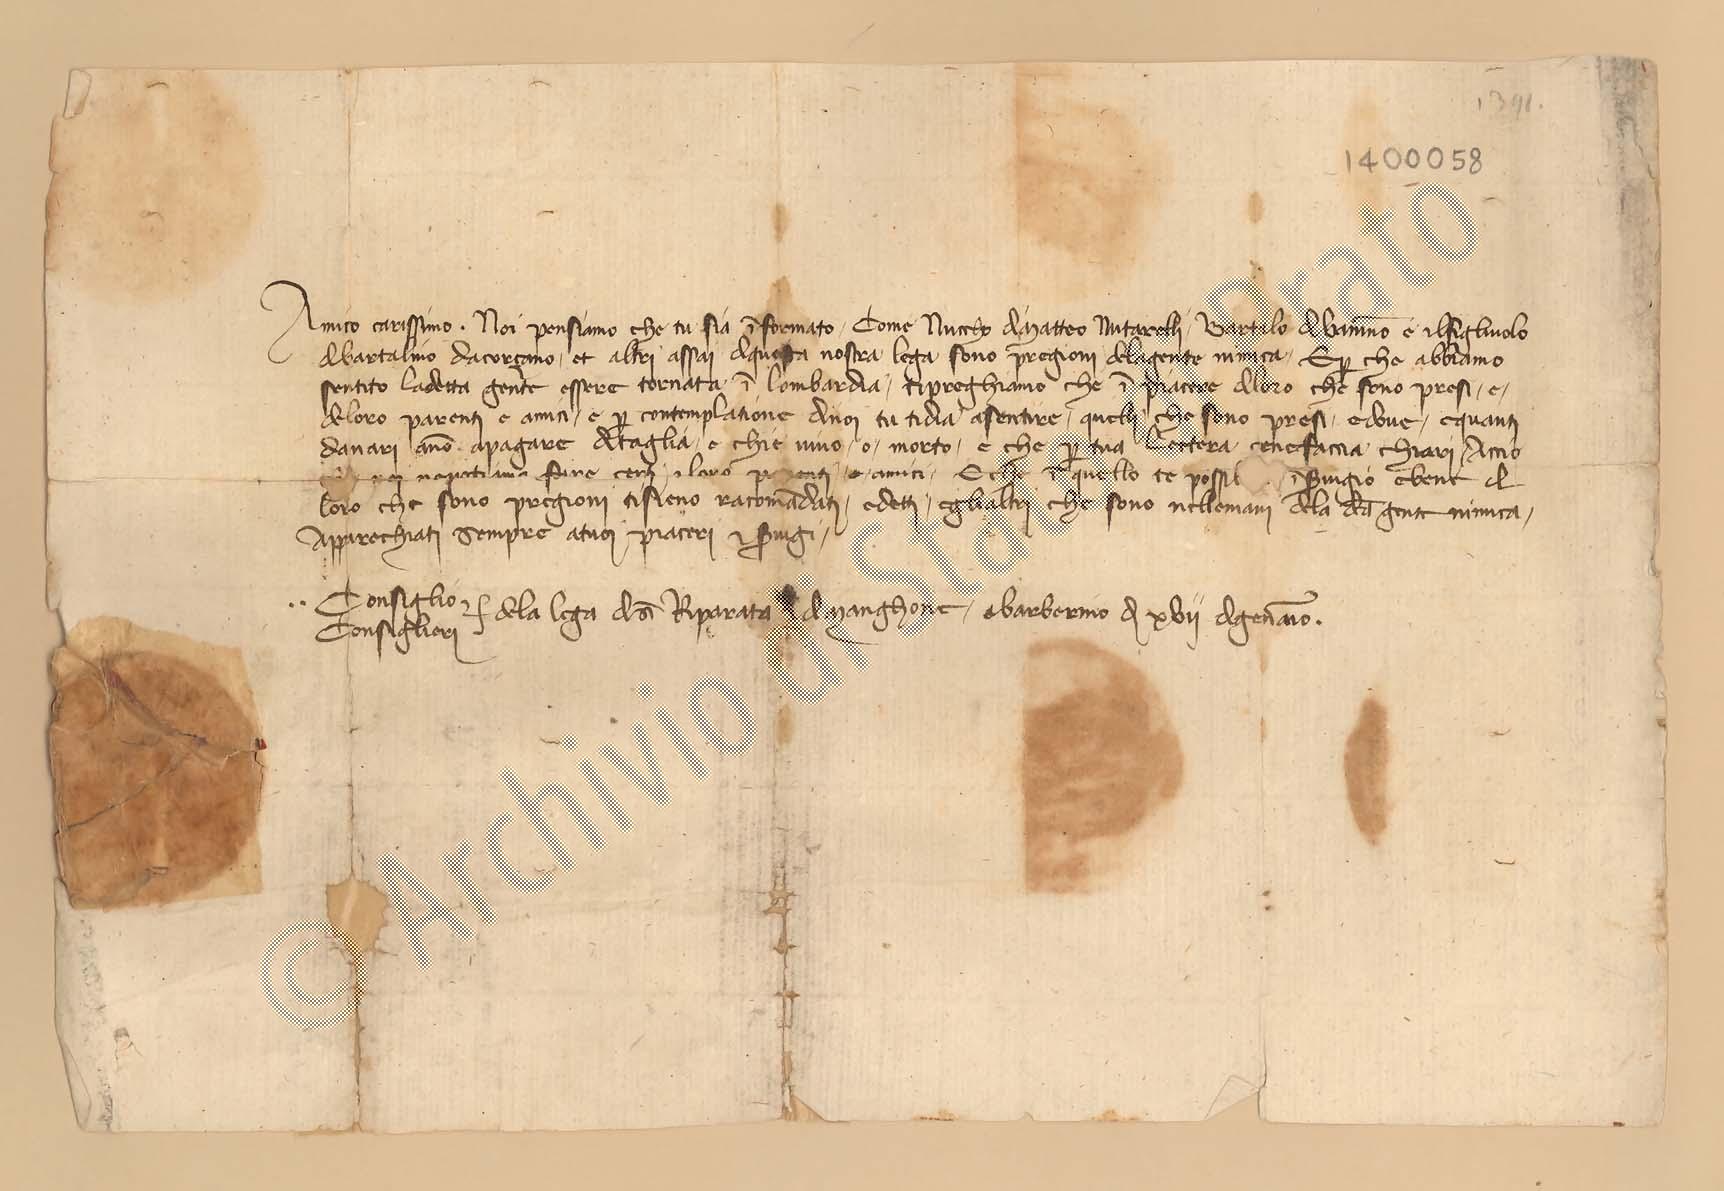 1391.
1400058
Amico carissimo. Noi pensiamo che tu sia īformato. Come Nuccho di Matteo Bartalo di Vannino e il figliuolo
di Bartalino et altri assai di questa nostra lega sono pregioni dela gente nimica. E per che abbiamo
sentito la detta gente essere tornata ī lombardia, ti preghiamo che ī piacere di loro che sono presi, e,
di loro parenti e amici, e per contemplatione di noi tu ti dia a sentire, quelli che sono presi, e dove, e quanti
danari āno a pagare di taglia, e chi e vivo, o, morto, e che per tua lettera ce ne faccia chiari, Accio
noi ne possiamo fare i loro parenti e amici. E che ī quello te possi ī servigio e bene di
loro che sono pregioni ti sieno racomādati, e detti, e gli altri che sono nelle mani dela dēa gente nimica,
Apparechiati sempre a tuoi piaceri e servigi,
Consiglio
Consiglieri
dela lega di sēa Riparata di Manghone, e barberino dì xvii di gennaio.
© Archivio di Stato di Prato